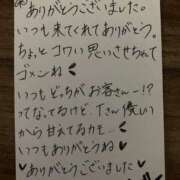 ありがとうございました。
いつも来てくれてありがとう。
ちょっとコワい思いさせちゃって
ゴメンね
いつもどっちがお客さんー!?
ってなってるけど、Tさん優しい
から甘えてるカモ…
いつもありがとうね
♥ありがとうございました♥